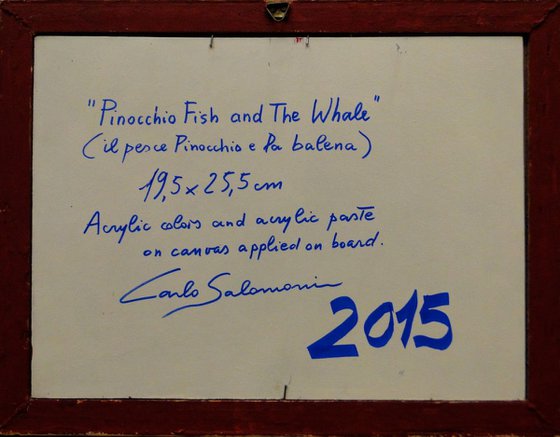 "Pinocchio Fish and The Whale"
(il pesce Pinocchio e la balena)
19,5 x 25,5 cm
Acrylic colors and acrylic paste
on canvas applied on board.
Carlo Salomoni
2015